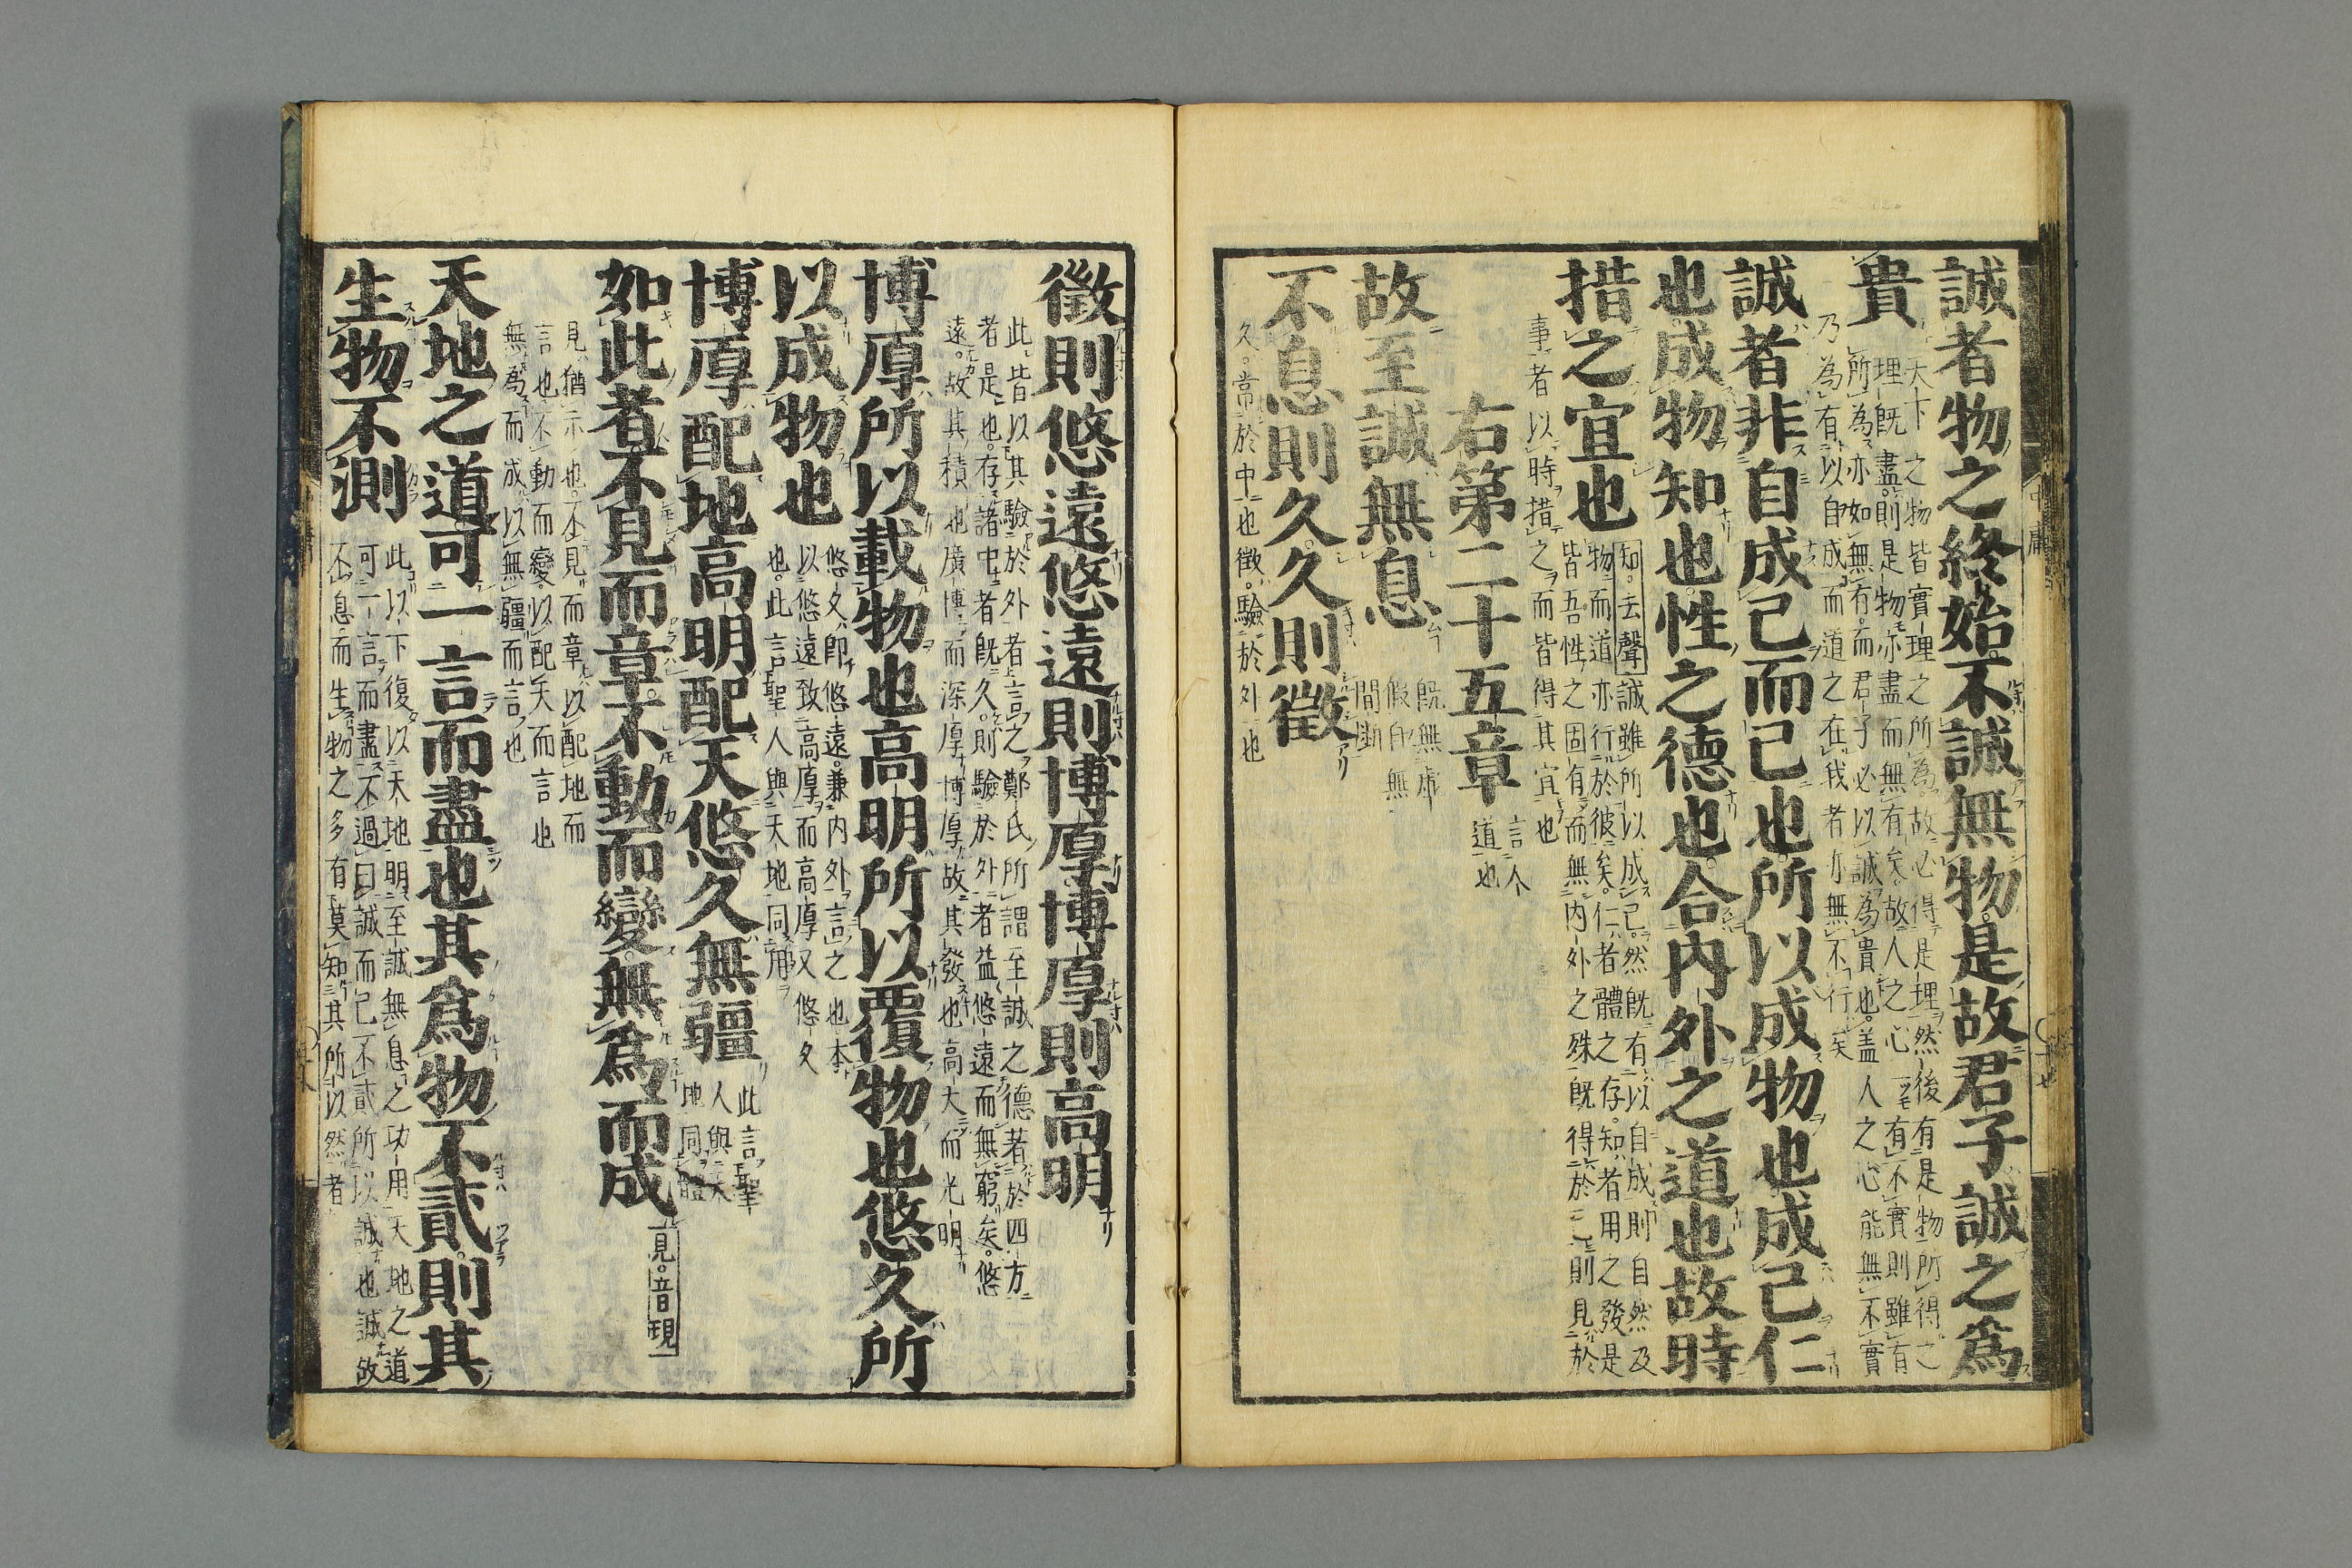 誠者物之終始不誠無物是故君子誠之爲
貴
天下之物皆實理之所為故必得是理然後有是物所得之
理既盡則是物亦盡而無有矣故人之心一有不實則雖有
所為亦如無有而君子必以誠為貴也蓋人之心能無不實
乃為有以自成而道之在我者亦無不行矣
誠者非自成己而已也所以成物也成己仁
也成物知也性之德也合內外之道也故時
措之宜也
知去聲誠雖所以成己然既有以自成則自然及
物而道亦行於彼矣仁者體之存知者用之發是
皆吾性之固有而無內外之殊既得於己則見於
事者以時措之而皆得其宜也
右第二十五章
言人
道也
故至誠無息
既無虛
假自無
間斷
不息則久久則徵
久常於中也徵驗於外也
徵則悠遠悠遠則博厚博厚則高明
此皆以其驗於外者言之鄭氏所謂至誠之德者於四方
者是也存諸中者既久則驗於外者益悠遠而無窮矣悠
遠故其積也廣博而深厚博厚故其發也高大而光明
博厚所以載物也高明所以覆物也悠久所
以成物也
悠久即悠遠兼內外言之也本
以悠遠致高厚而高厚又悠久
也此言聖人與天地同用
博厚配地高明配天悠久無疆
此言聖
人與天
地同體
如此者不見而章不動而變無爲而成
見音現
見猶示也不見而章以配地而
言也不動而變以配天而言也
無為而成以無疆而言也
天地之道可一言而盡也其爲物不貳則其
生物不測
此以下復以天地明至誠無息之功用天地之道
可一言而盡不過曰誠而已不貳所以誠也誠故
不息而生物之多有莫知其所以然者